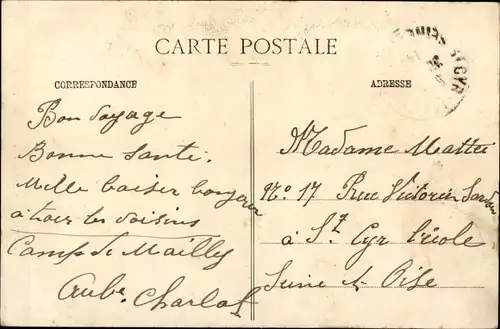 CARTE POSTALE
CORRESPONDANCE
Bon voyage
Bonne Santé.
Mille baiser bonjour
à tous les voisins
Camp de Mailly
Aube. Charlot
ADRESSE
Madame Mattei
No 17 Rue Victorien Sardou
à St Cyr l'école
Seine et Oise